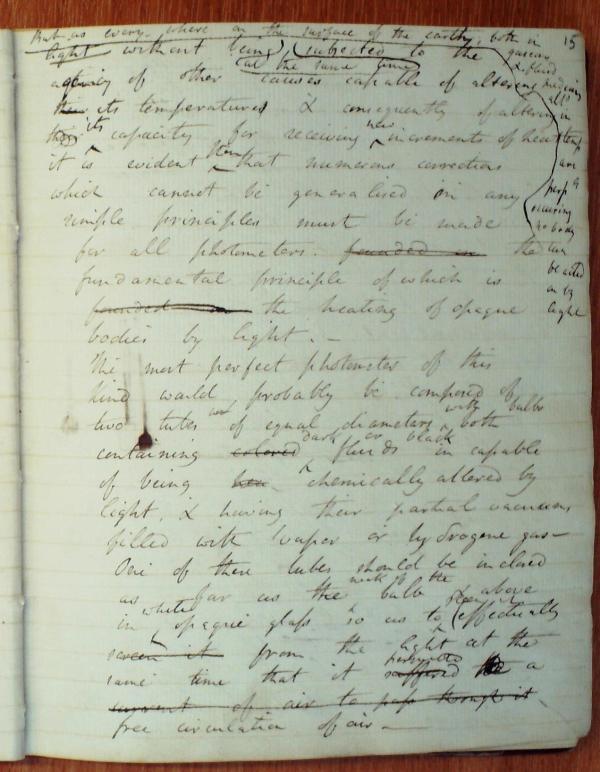 15
But as every where on the surface of the earth, both in
gaseous
light without being subjected to the
& fluid
at the same time
agency of other causes capable of altering
its temperatures & consequently of altering
its new
capacity for receiving increments of heat
it is evident then that numerous corrections
which cannot be generalised in any
simple principles must be made
for all photometers. founded on the
fundamental principle of which is
founded on the heating of opaque
bodies by light. —
The most perfect photometer of this
kind would probably be composed of
two tubes of equal diameters with bulbs both
dark or black
containing colored fluids incapable
of being chemically altered by
light, & having their partial vacuums
filled with vapor or hydrogene gas —
One of these tubes should be inclosed
neck of the
as far as the bulb above
white
in opaque glass so as to effectually
screen it from the light at the
permitted
same time that it suffered a
current of air to pass through it
free circulation of air —
are
perp
occurring
no body
can
be acted
on by
light